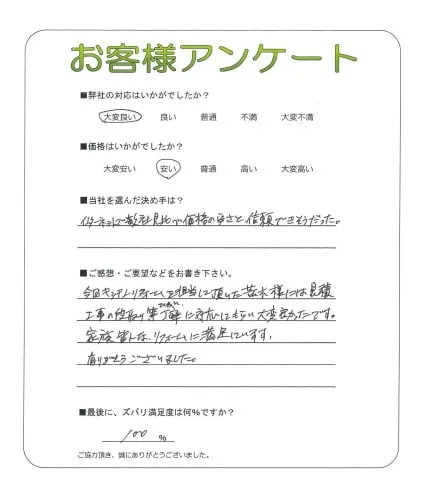 お客様アンケート
■弊社の対応はいかがでしたか？
大変良い 良い 普通 不満 大変不満
■価格はいかがでしたか？
大変安い 安い 普通 高い 大変高い
■当社を選んだ決め手は？
インターネットで数社見比べ価格の安さと、信頼できそうだった。
■ご感想・ご要望などをお書き下さい。
今回キッチンリフォームを担当して頂いた 様には見積
工事の段取り等丁寧に対応してもらい大変良かったです。
家族皆んな、リフォームに満足しています。
ありがとうございました。
■最後に、ズバリ満足度は何％ですか？
100 %
ご協力頂き、誠にありがとうございました。